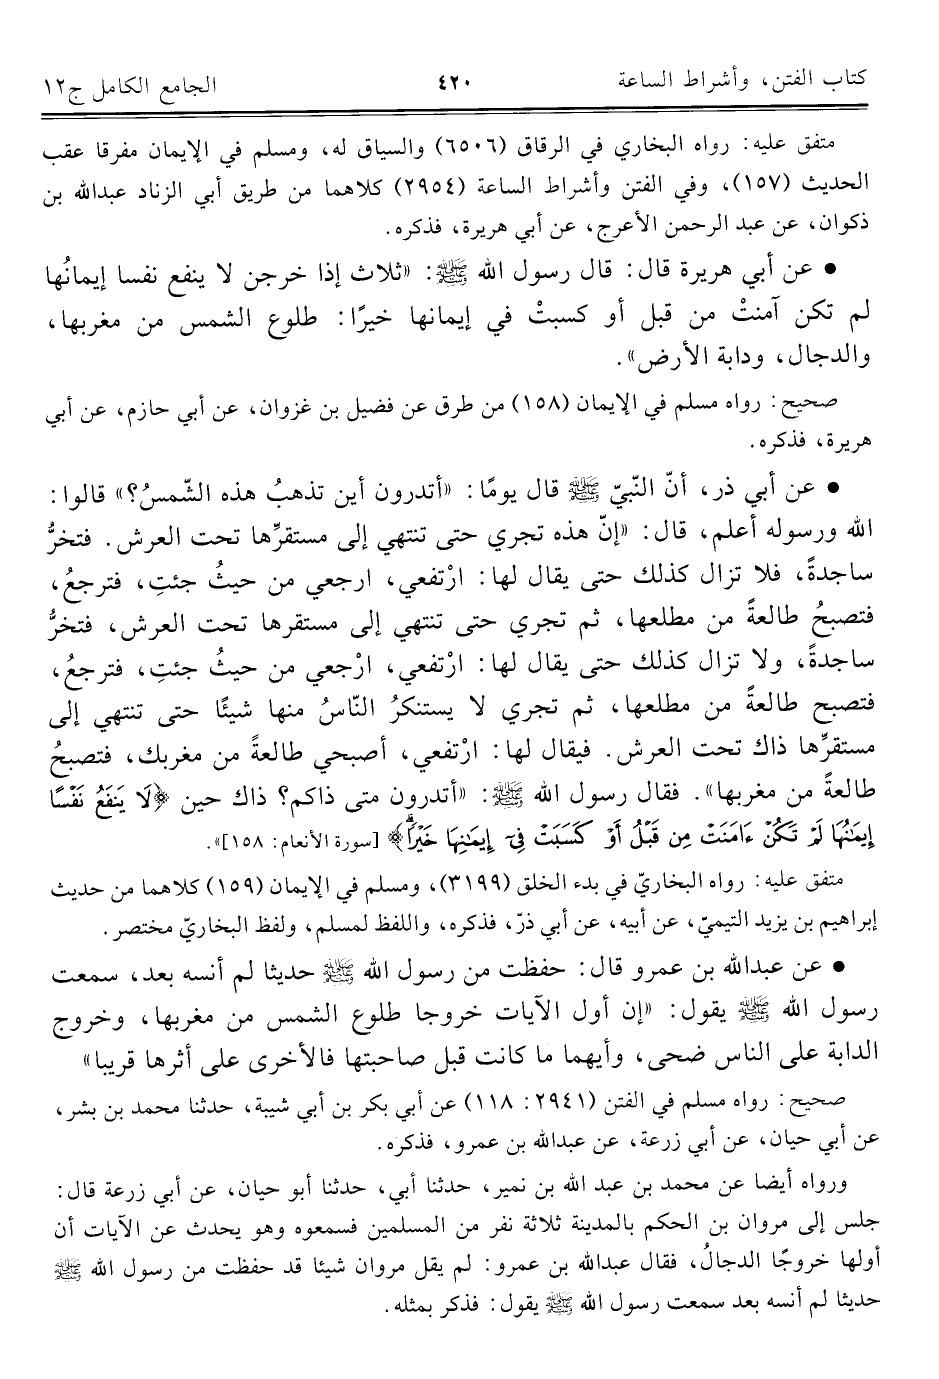 كتاب الفتن، وأشراط الساعة ٤٢٠ الجامع الكامل ج١٢
متفق عليه: رواه البخاري في الرقاق (٦٥٠٦) والسياق له، ومسلم في الإيمان مفرقا عقب
الحديث (١٥٧)، وفي الفتن وأشراط الساعة (٢٩٥٤) كلاهما من طريق أبي الزناد عبدالله بن
ذكوان، عن عبد الرحمن الأعرج، عن أبي هريرة، فذكره.
• عن أبي هريرة قال: قال رسول الله ﷺ: «ثلاث إذا خرجن لا ينفع نفسا إيمانُها
لم تكن آمنتْ من قبل أو كسبتْ في إيمانها خيرًا: طلوع الشمس من مغربها،
والدجال، ودابة الأرض».
صحيح: رواه مسلم في الإيمان (١٥٨) من طرق عن فضيل بن غزوان، عن أبي حازم، عن أبي
هريرة، فذكره.
• عن أبي ذر، أنّ النّبيّ ﷺ قال يومًا: «أتدرون أين تذهبُ هذه الشّمسُ؟» قالوا:
الله ورسوله أعلم، قال: «إنّ هذه تجري حتى تنتهي إلى مستقرِّها تحت العرش. فتخرُّ
ساجدةً، فلا تزال كذلك حتى يقال لها: ارْتفعي، ارجعي من حيثُ جئتِ، فترجعُ،
فتصبحُ طالعةً من مطلعها، ثم تجري حتى تنتهي إلى مستقرها تحت العرش، فتخرُّ
ساجدةً، ولا تزال كذلك حتى يقال لها: ارْتفعي، ارْجعي من حيثُ جئتِ، فترجعُ،
فتصبح طالعةً من مطلعها، ثم تجري لا يستنكرُ النّاسُ منها شيئًا حتى تنتهي إلى
مستقرِّها ذاك تحت العرش. فيقال لها: ارْتفعي، أصبحي طالعةً من مغربك، فتصبحُ
طالعةً من مغربها». فقال رسول الله ﷺ: «أتدرون متى ذاكم؟ ذاك حين ﴿لَا يَنفَعُ نَفْسًا
إِيمَٰنُهَا لَمْ تَكُنْ ءَامَنَتْ مِن قَبْلُ أَوْ كَسَبَتْ فِىٓ إِيمَٰنِهَا خَيْرًا﴾ [سورة الأنعام: ١٥٨]».
متفق عليه: رواه البخاريّ في بدء الخلق (٣١٩٩)، ومسلم في الإيمان (١٥٩) كلاهما من حديث
إبراهيم بن يزيد التيميّ، عن أبيه، عن أبي ذرّ، فذكره، واللفظ لمسلم، ولفظ البخاريّ مختصر.
• عن عبدالله بن عمرو قال: حفظت من رسول الله ﷺ حديثا لم أنسه بعد، سمعت
رسول الله ﷺ يقول: «إن أول الآيات خروجا طلوع الشمس من مغربها، وخروج
الدابة على الناس ضحى، وأيهما ما كانت قبل صاحبتها فالأخرى على أثرها قريبا»
صحيح: رواه مسلم في الفتن (٢٩٤١: ١١٨) عن أبي بكر بن أبي شيبة، حدثنا محمد بن بشر،
عن أبي حيان، عن أبي زرعة، عن عبدالله بن عمرو، فذكره.
ورواه أيضا عن محمد بن عبد الله بن نمير، حدثنا أبي، حدثنا أبو حيان، عن أبي زرعة قال:
جلس إلى مروان بن الحكم بالمدينة ثلاثة نفر من المسلمين فسمعوه وهو يحدث عن الآيات أن
أولها خروجًا الدجالُ، فقال عبدالله بن عمرو: لم يقل مروان شيئا قد حفظت من رسول الله ﷺ
حديثا لم أنسه بعد سمعت رسول الله ﷺ يقول: فذكر بمثله.